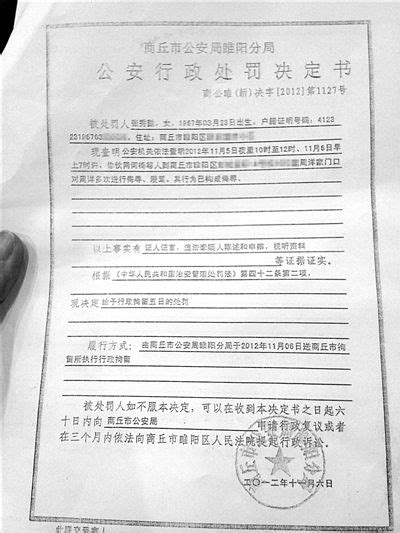 商丘市公安局睢阳分局
公安行政处罚决定书
商公睢(新)决字[2012]第1127号
被处罚人张秀勤，女，1967年03月23日出生，户籍证明号码：4123
23196703 ，住址：商丘市睢阳区
现查明公安机关依法查明2012年11月5日夜里10时至12时、11月6日早
上7时许，你伙同何 等人到商丘市睢阳区 周洋家门口
对周洋多次进行侮辱、谩骂，其行为已构成侮辱。
以上事实有 证人证言，违法嫌疑人陈述和申辩，视听资料
等证据证实。
根据 《中华人民共和国治安管理处罚法》第四十二条第二项，
现决定 给予行政拘留五日的处罚
履行方式：由商丘市公安局睢阳分局于2012年11月06日送商丘市拘
留所执行行政拘留
被处罚人如不服本决定，可以在收到本决定书之日起六
十日内向 商丘市公安局 申请行政复议或者
在三个月内依法向商丘市睢阳区人民法院提起行政诉讼。
二〇一二年十一月六日